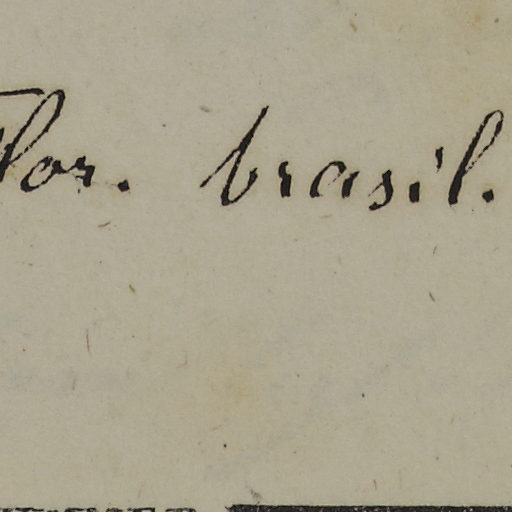 Flor. brasil.